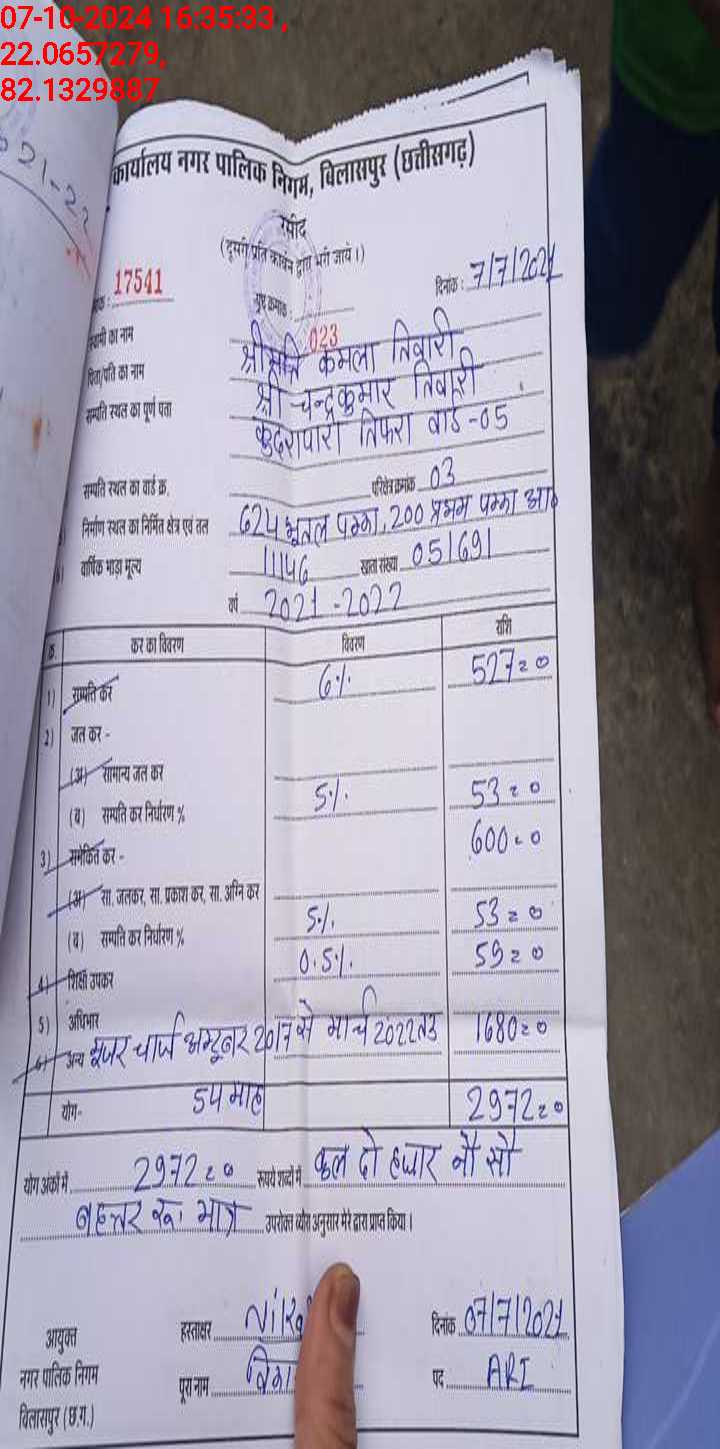 07-10-2024 16:35:33 ,
22.0657279,
82.1329887
21-22
कार्यालय नगर पालिक निगम, बिलासपुर (छत्तीसगढ़)
रसीद
(दूसरी प्रति कार्बन द्वारा भरी जाये।)
17541 दिनांक : 7/7/2021
023
स्वामी का नाम श्रीमति कमला तिवारी
पिता/पति का नाम श्री चन्द्रकुमार तिवारी
सम्पति स्थल का पूर्ण पता कुदरापारा तिफरा वार्ड -05
सम्पति स्थल का वार्ड क्र. परिक्षेत्र क्रमांक 03
निर्माण स्थल का निर्मित क्षेत्र एवं तल 624 भूतल पक्का, 200 प्रथम पक्का आ०
वार्षिक भाड़ा मूल्य 11146 खाता संख्या 051691
वर्ष 2021-2022
क्र. कर का विवरण विवरण राशि
1) सम्पति कर 6% 527=0
2) जल कर -
(अ) सामान्य जल कर
(ब) सम्पति कर निर्धारण % 5% 53=0
3) समेकित कर - 600=0
(अ) सा. जलकर, सा. प्रकाश कर, सा. अग्नि कर
(ब) सम्पति कर निर्धारण % 5% 53=0
4) शिक्षा उपकर 0.5% 59=0
5) अधिभार
6) अन्य यूजर चार्ज अक्टूबर 2017 से मार्च 2022 तक 1680=0
योग- 54 माह 2972=0
योग अंकों में 2972=0 रूपये शब्दों में कुल दो हजार नौ सौ
बहत्तर रू. मात्र उपरोक्त ब्योरा अनुसार मेरे द्वारा प्राप्त किया।
आयुक्त हस्ताक्षर दिनांक 07/7/2021
नगर पालिक निगम पूरा नाम पद ARI
बिलासपुर (छ.ग.)